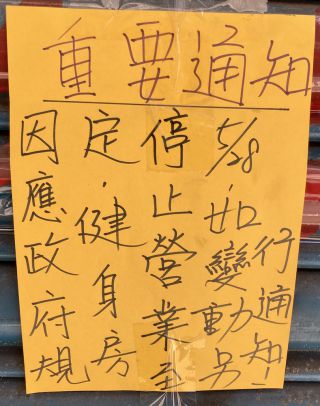 重要通知
因應政府規
定,健身房
停止營業至
5/28,如變動另
行通知!